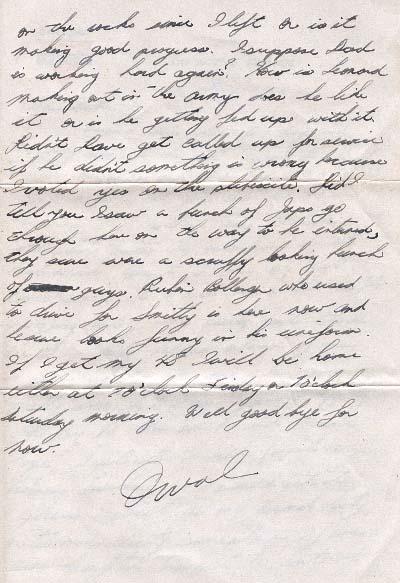 on the rocks since I left or is it
making good progress. I suppose Dad
is working hard again? How is Leonard
making out in the army does he like
it or is he getting fed up with it.
Didn't Dave get called up for service
if he didn't something is wrong because
I voted yes in the plebiscite. Did I
tell you I saw a bunch of Japs go
through here on the way to be interned,
they sure were a scruffy looking bunch
of guys. Rubin who used
to drive for Smitty is here now and
he sure looks funny in his uniform.
If I get my 48 I will be home
either at 7 o'clock Friday or 7 o'clock
Saturday morning. Well good bye for
now.